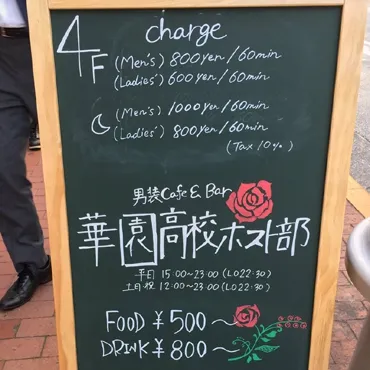 4F
charge
(Men's) 800yen/60min
(Ladies') 600yen/60min
(Men's) 1000yen/60min
(Ladies') 800yen/60min
(Tax 10%)
男装Cafe & Bar
華園高校ホスト部
平日 15:00~23:00 (LO22:30)
土日祝 12:00~23:00 (LO22:30)
FOOD ¥500~
DRINK ¥800~